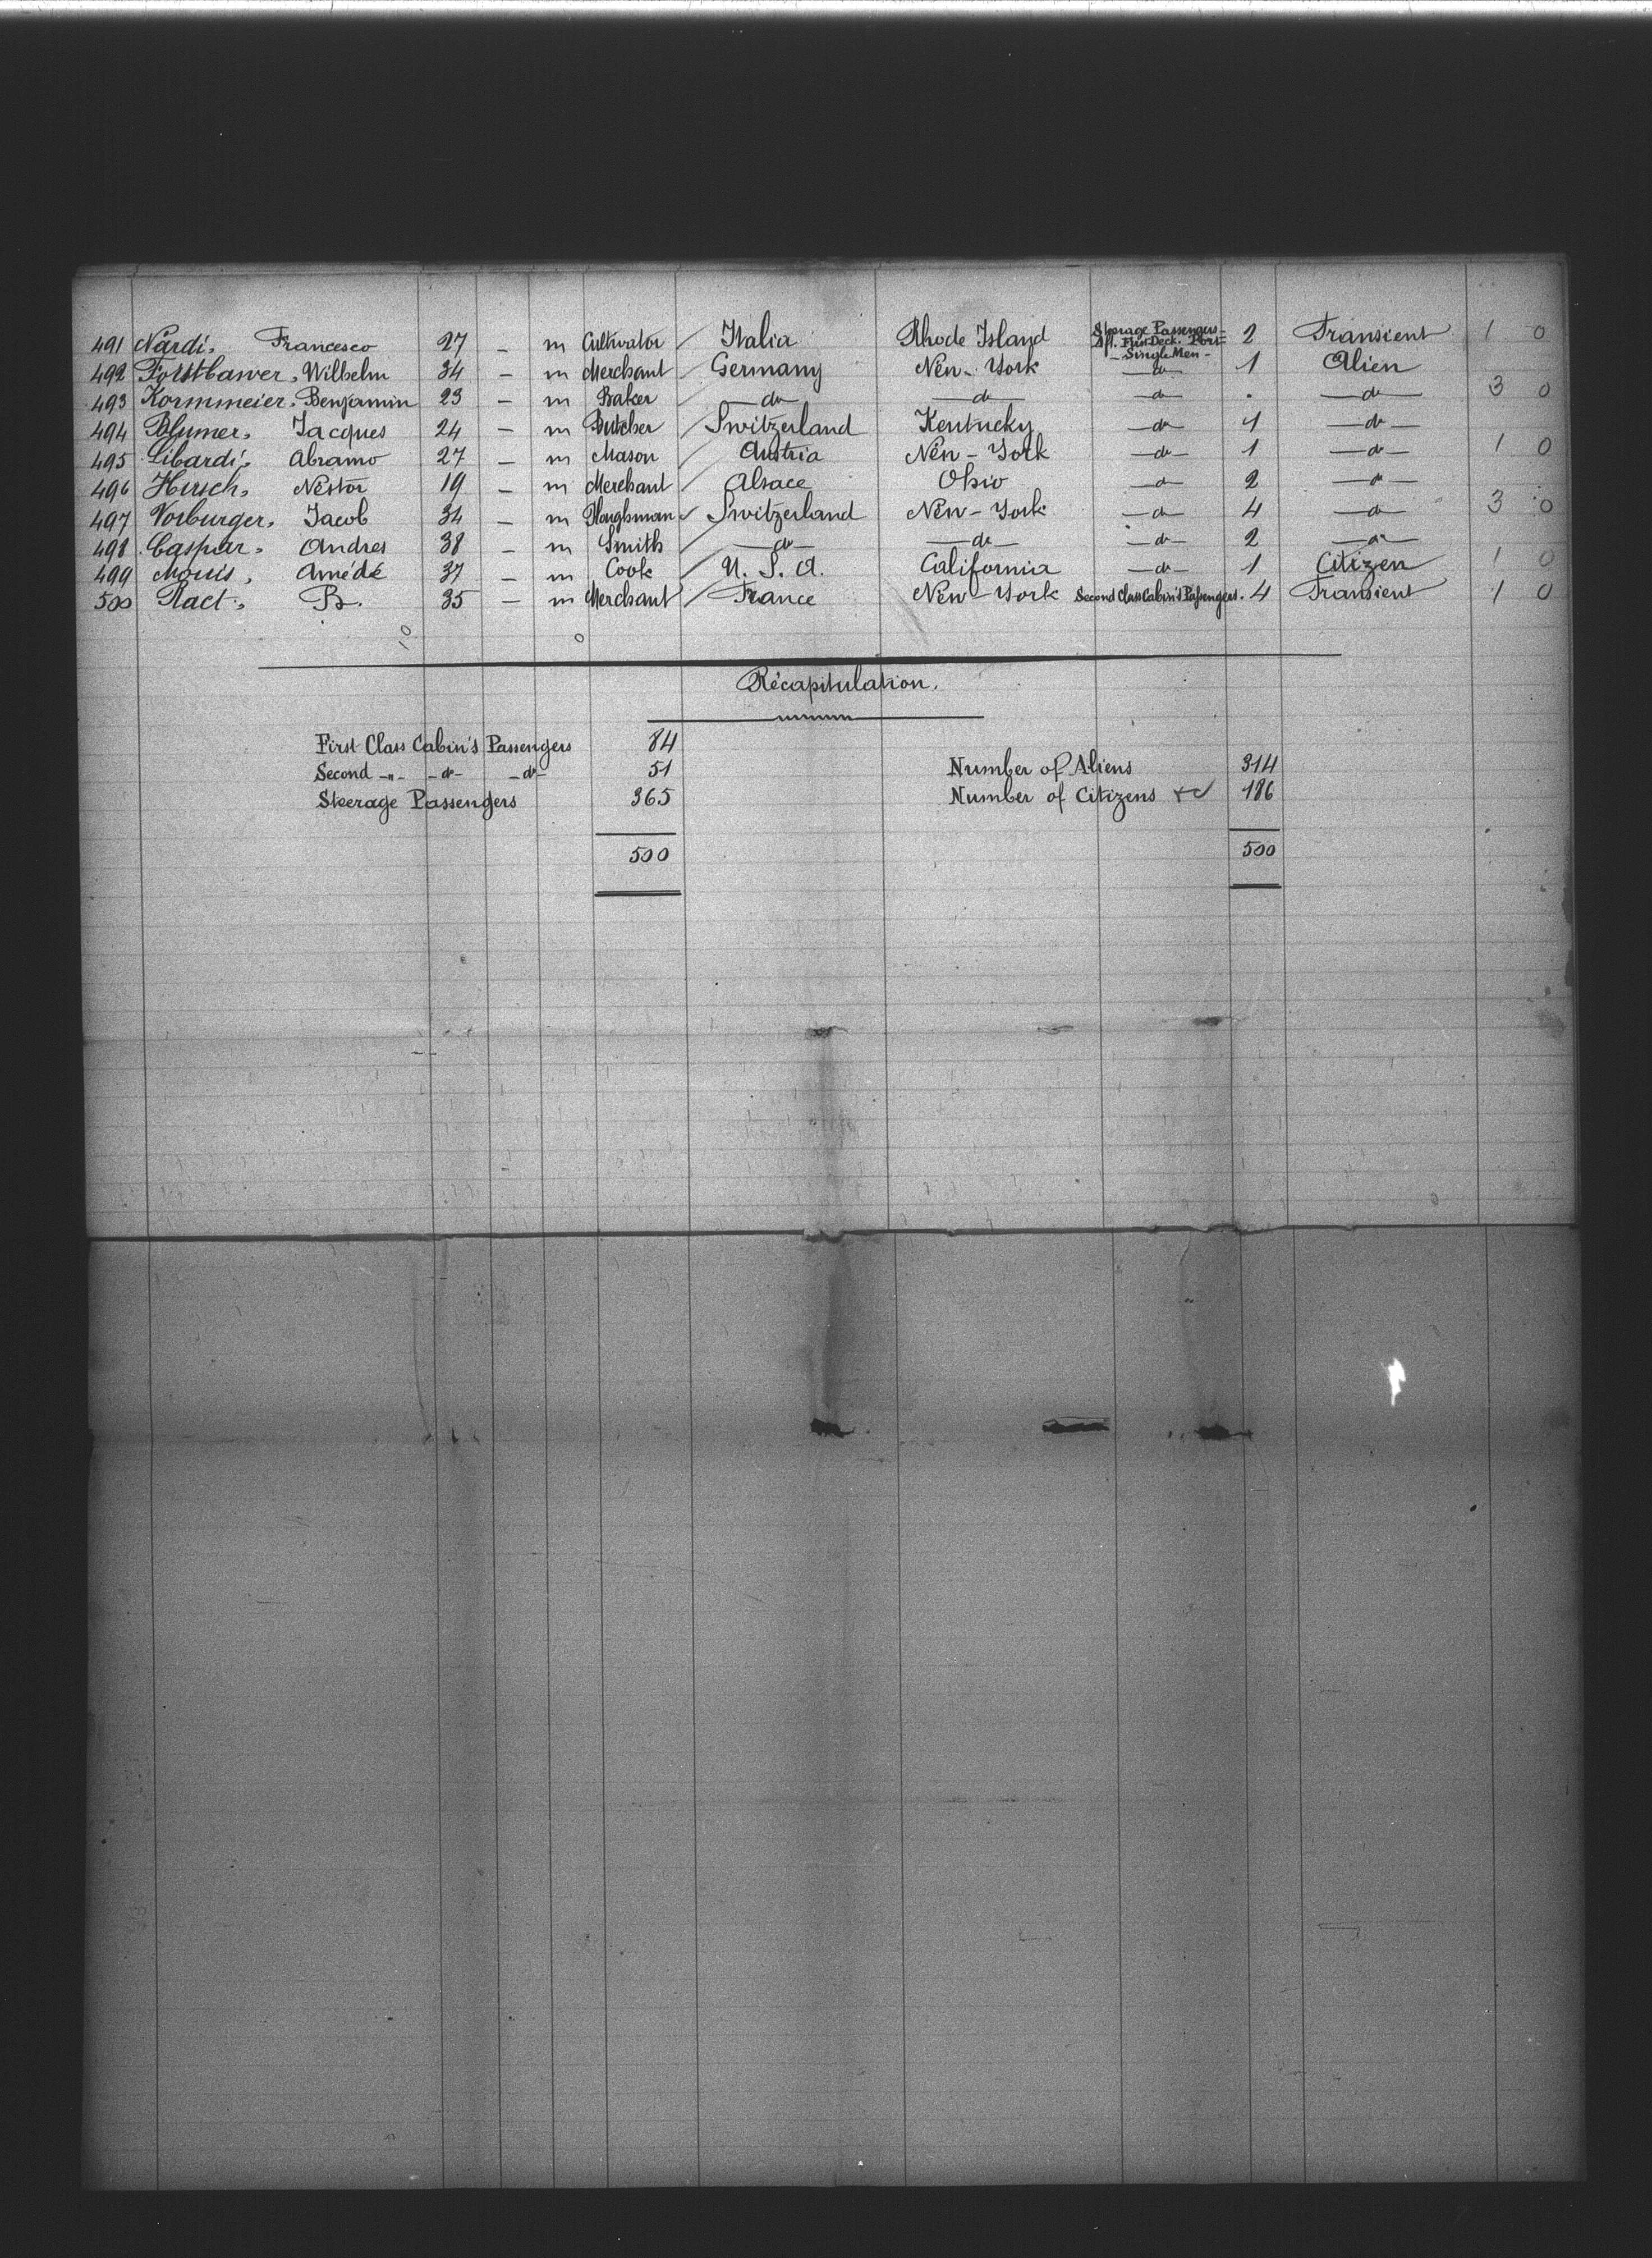 491 Nardi, Francesco 27 - m Cultivator Italia Rhode Island Steerage Passengers Aft. Fun Deck. Port Single Men - 2 Transient 1 0
492 Wilhelm 34 - m Merchant Germany New-York -do- 1 Alien
493 Kornmeier, Benjamin 23 - m Baker -do- -do- -do- . -do- 3 0
494 Blumer, Jacques 24 - m Butcher Switzerland Kentucky -do- 1 -do-
495 Libardi, Abramo 27 - m Mason Austria New-York -do- 1 -do- 1 0
496 Hirsch, Nestor 19 - m Merchant Alsace Ohio -do- 2 -do-
497 Vorburger, Jacob 34 - m Ploughsman Switzerland New-York -do- 4 -do- 3 0
498 Caspar, Andres 38 - m Smith -do- -do- -do- 2 -do-
499 Amédé 37 - m Cook U. S. A. California -do- 1 Citizen 1 0
500 Ract, B. 35 - m Merchant France New-York Second Class Cabin's Passengers. 4 Transient 1 0
10 0
Récapitulation.
First Class Cabin's Passengers 84
Second -"- -do- -do- 51 Number of Aliens 314
Steerage Passengers 365 Number of Citizens &c 186
500 500